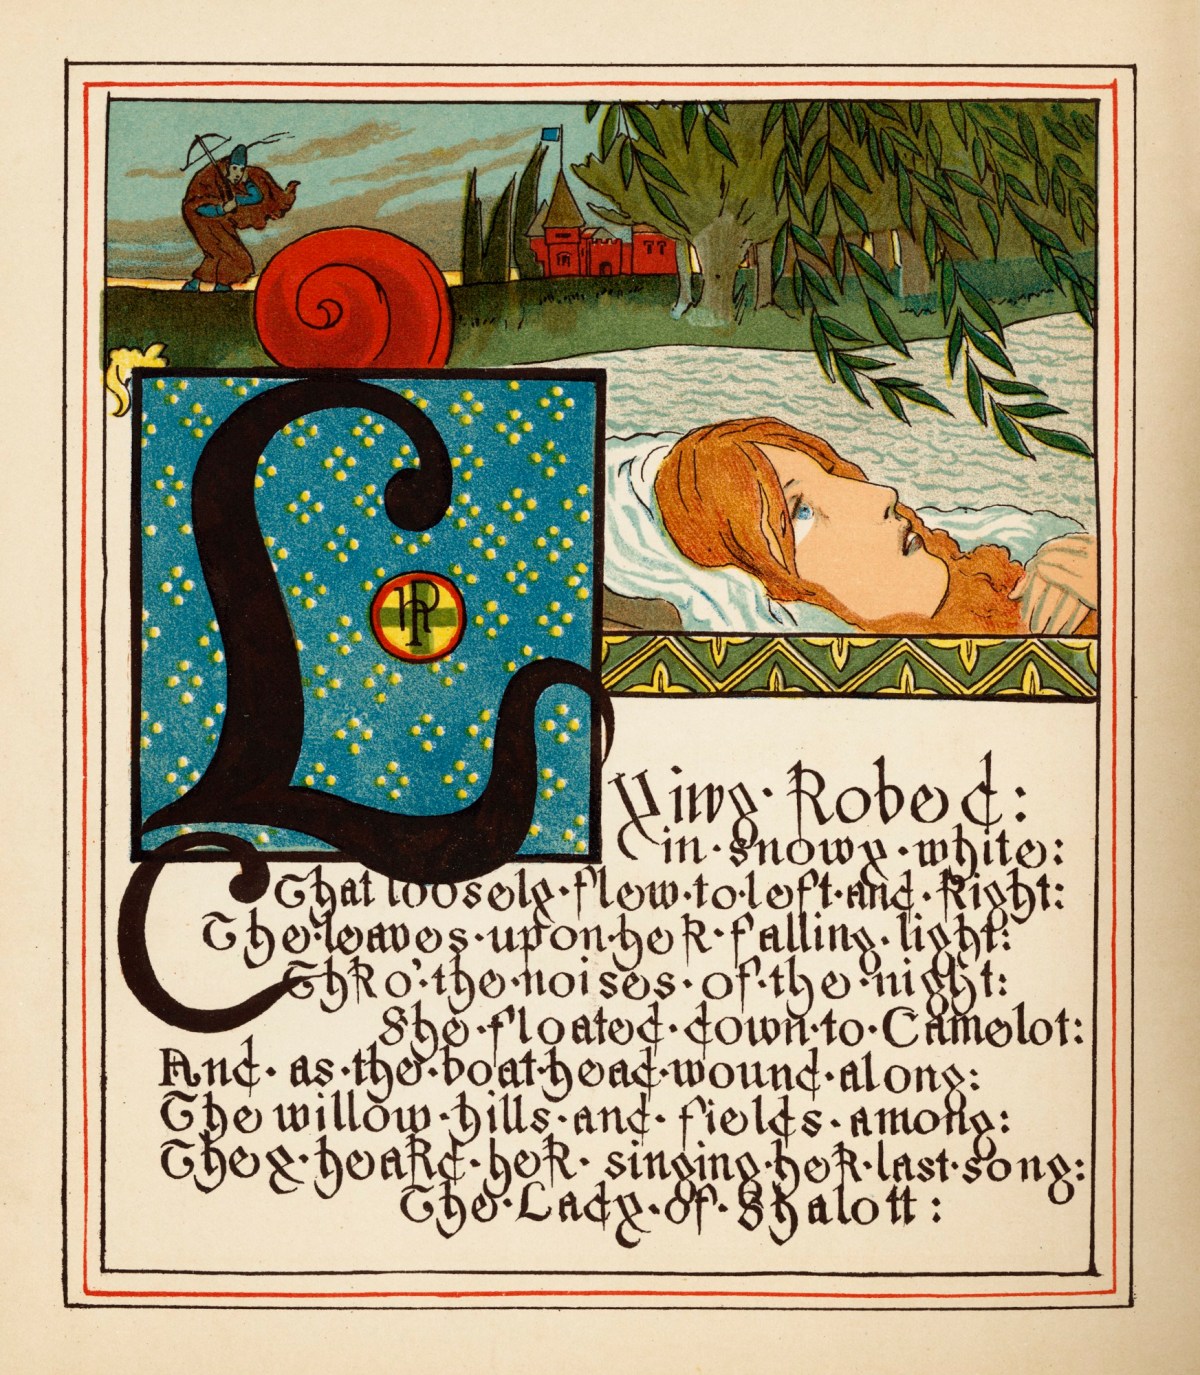 HP
Lying · Robed :
in · snowy · white :
That loosely · flew · to · left · and · Right :
The · leaves · upon · heR · falling · light :
ThRo' · the · noises · of · the · night :
She · floated · down · to · Camelot :
And · as · the · boat · head · wound · along :
The willow · hills · and · fields · among :
They · heaRd · heR · singing · heR · last · song :
The · Lady · of · Shalott :